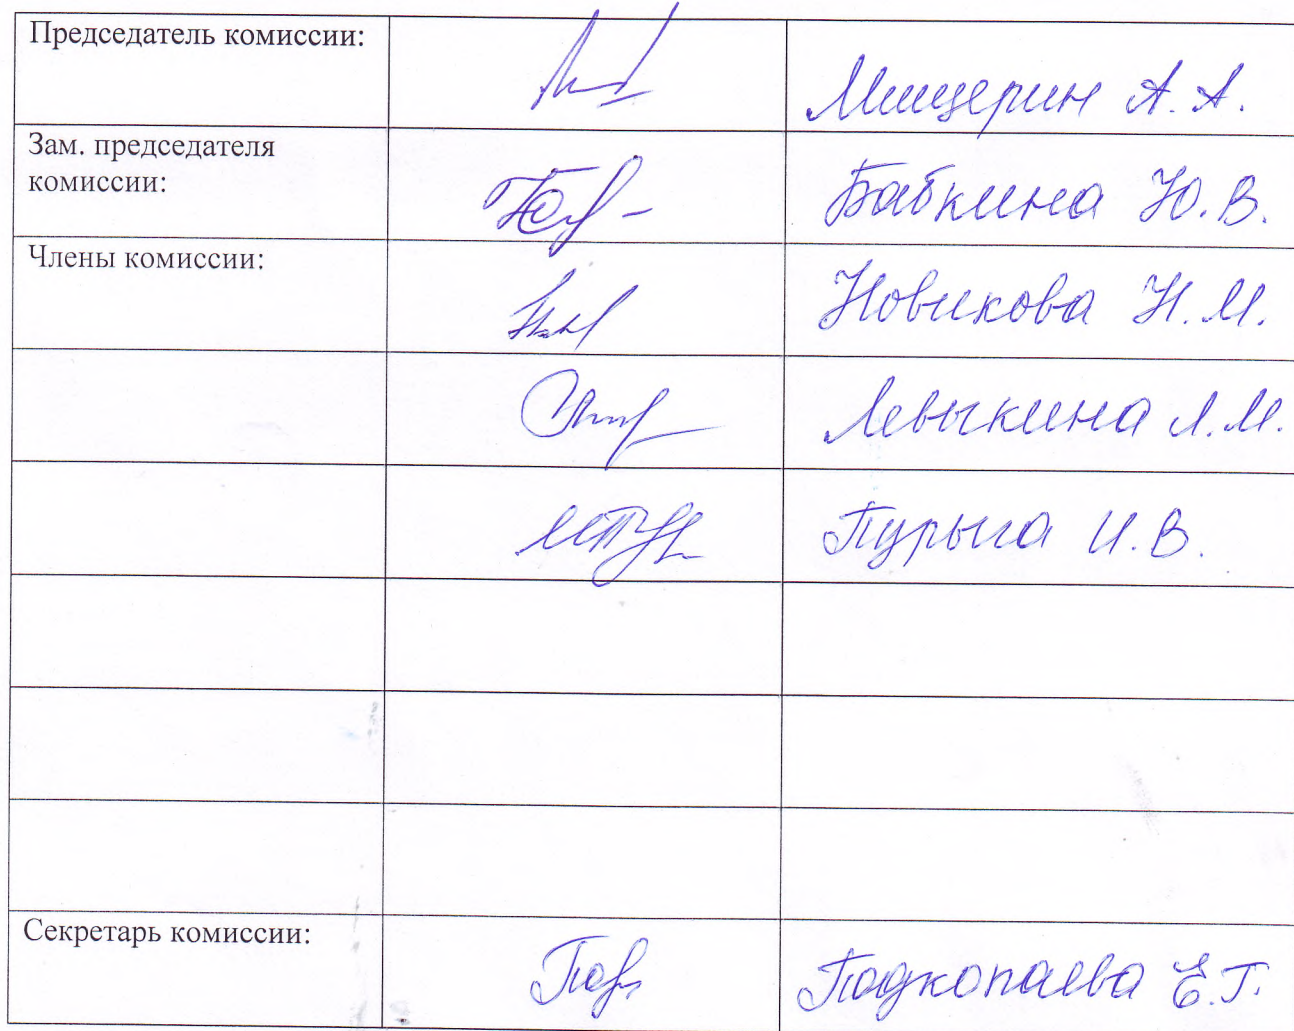 Председатель комиссии:
Мищерин А. А.
Зам. председателя
комиссии:
Бабкина Ю. В.
Члены комиссии:
Новикова Н. М.
Левыкина Л. М.
Пурыга И. В.
Секретарь комиссии:
Подкопаева Е. Г.